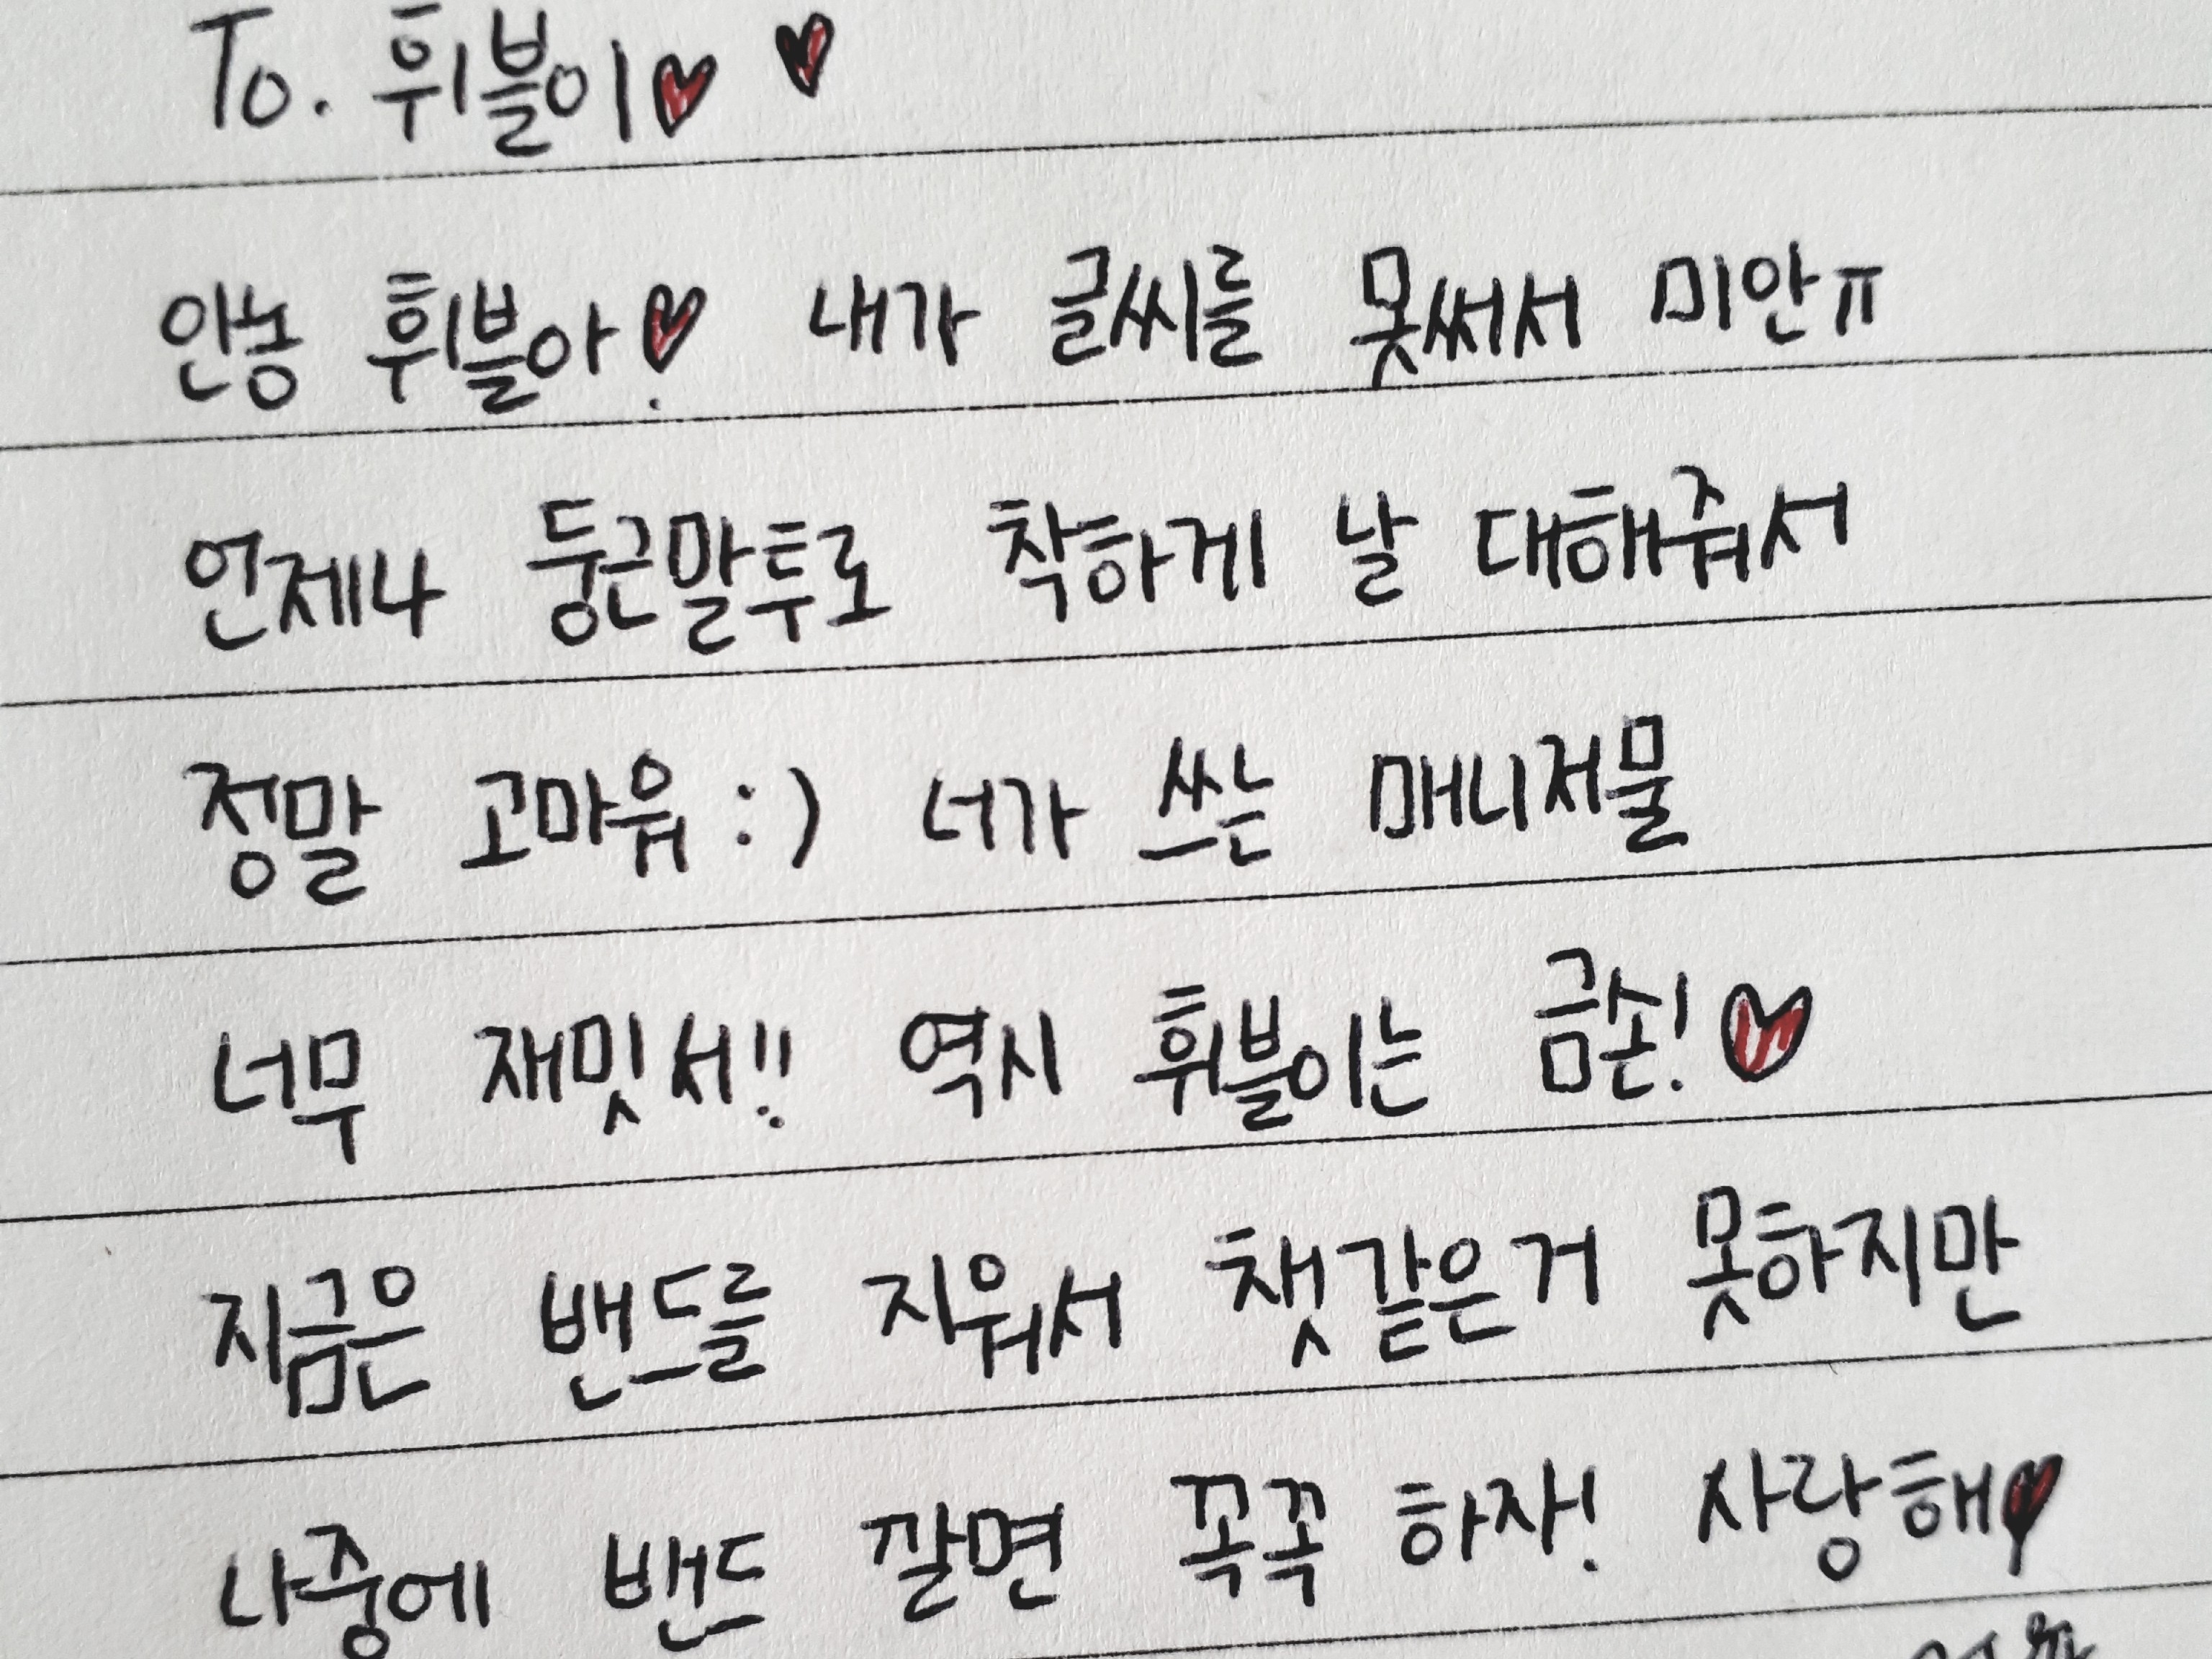 To. 휘블이♥ ♥
안농 휘블아♥! 내가 글씨를 못써서 미안ㅠ
언제나 둥근말투로 착하게 날 대해줘서
정말 고마워 :) 너가 쓰는 매니저물
너무 재밋서!! 역시 휘블이는 금손!♥
지금은 밴드를 지워서 챗같은거 못하지만
나중에 밴드 깔면 꼭꼭 하자! 사랑해♥